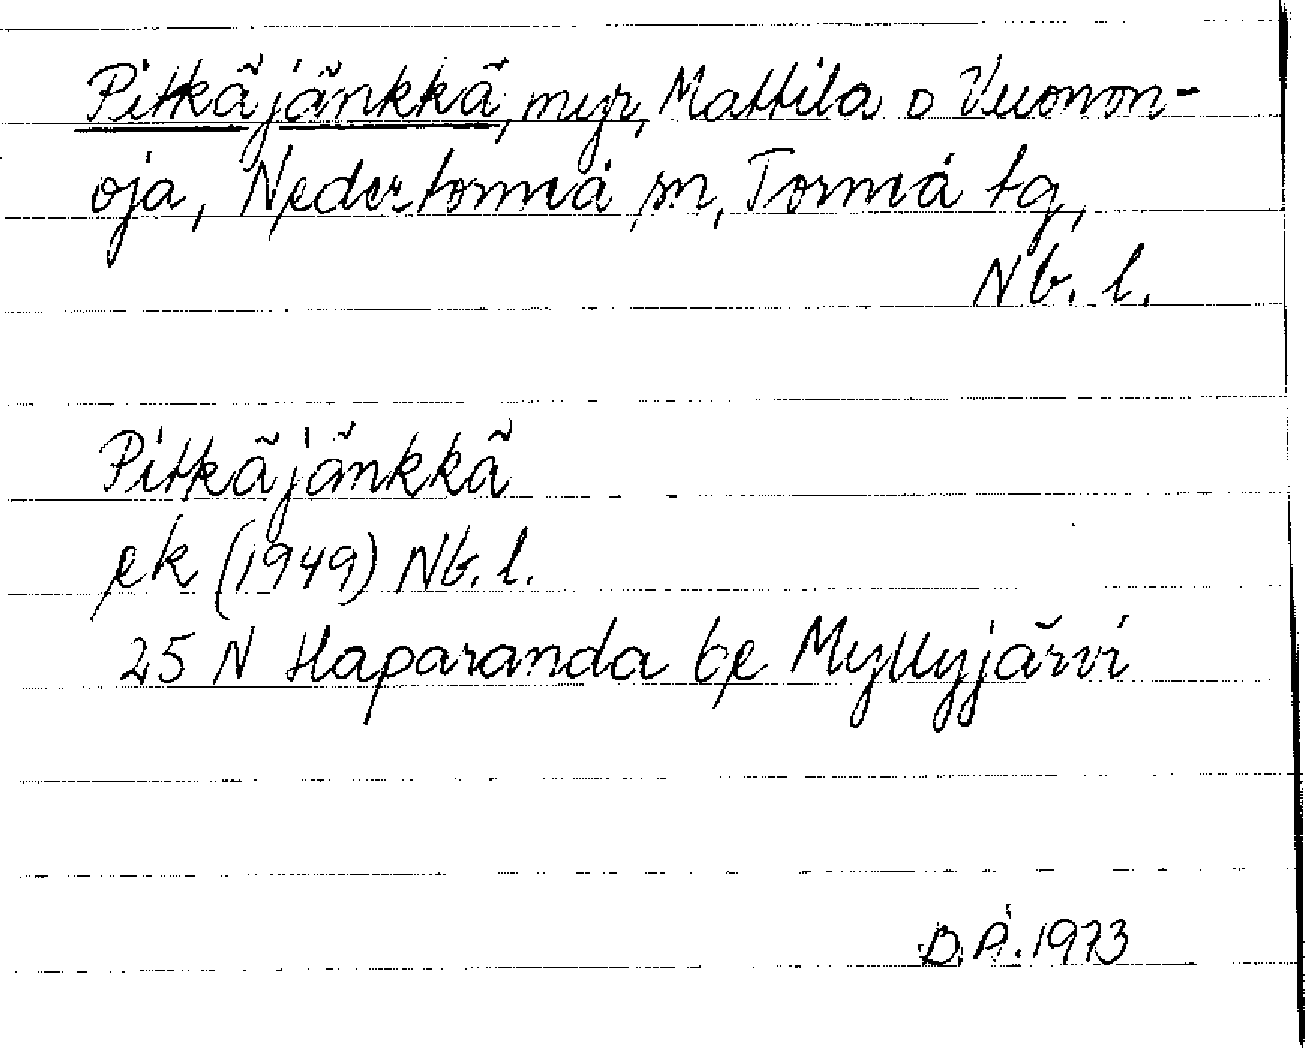 Pitkäjänkkä, myr, Mattila o Vuonon-
oja, Nedertorneå sn, Torneå tg,
Nb. l.
Pitkäjänkkä
ek (1949) Nb. l.
25 N Haparanda be Myllyjärvi
D.Å. 1973